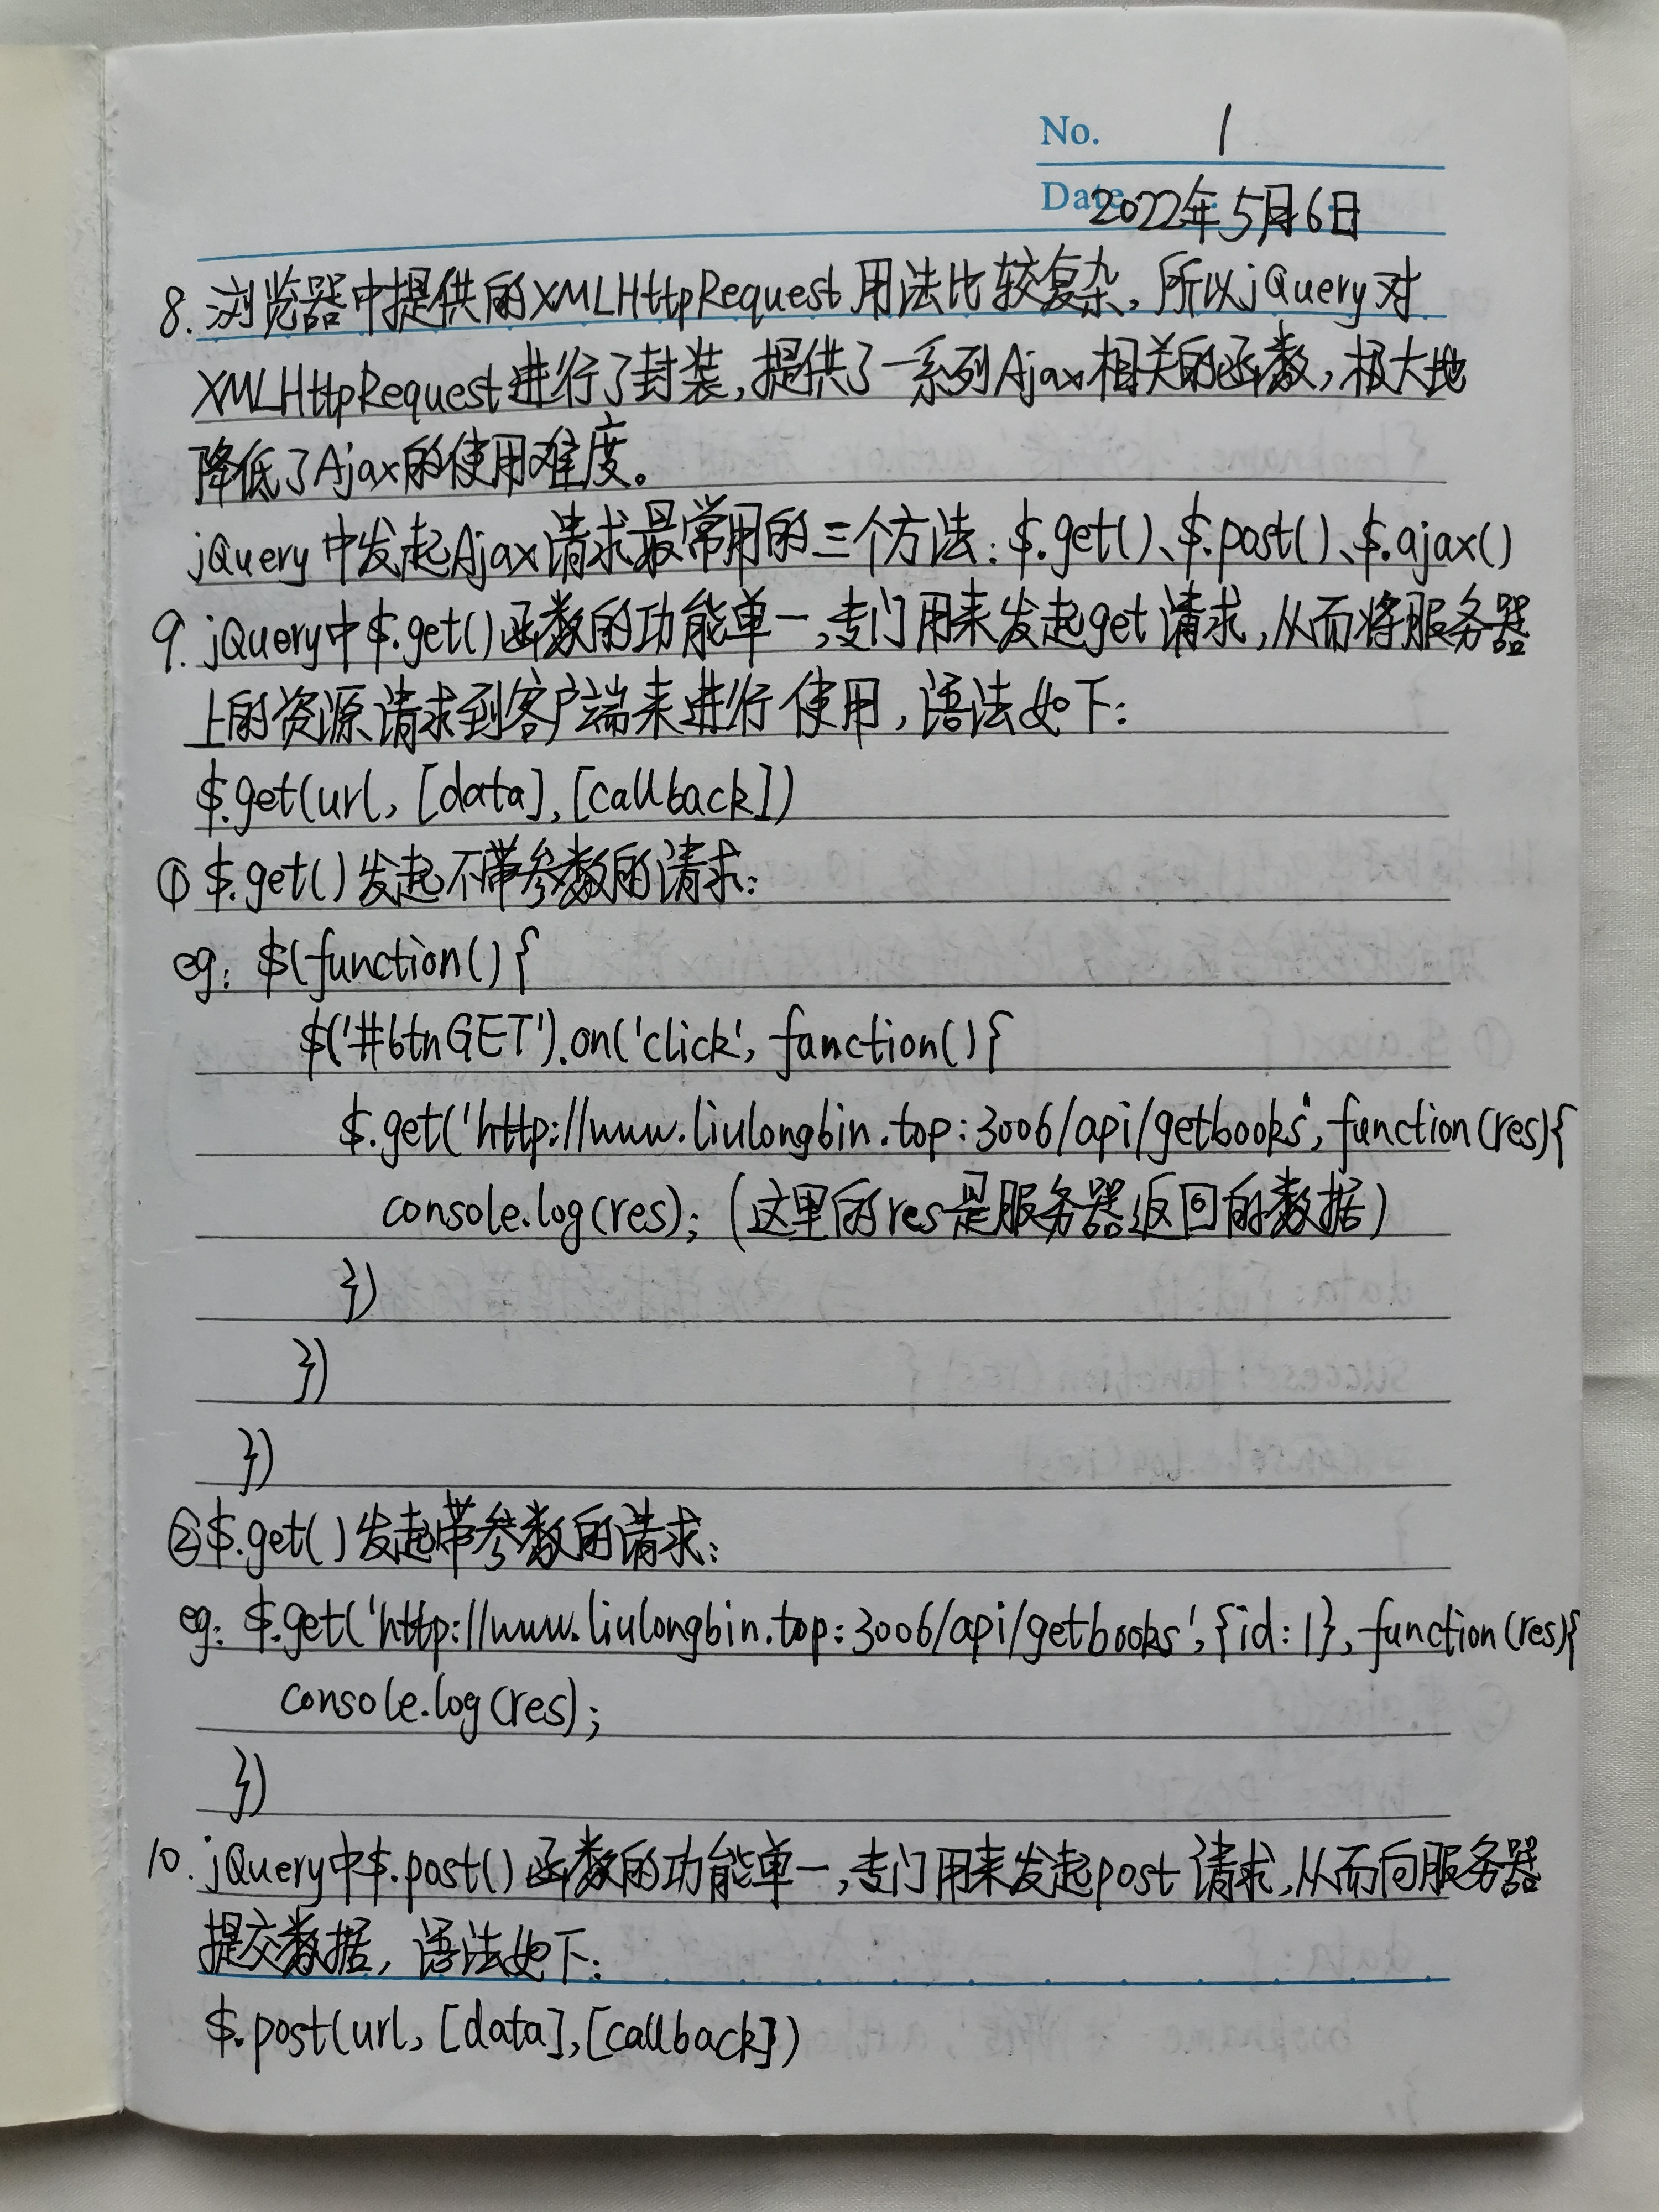 No. 1
Date 2022年5月6日
8. 浏览器中提供的XMLHttpRequest用法比较复杂,所以jQuery对
XMLHttpRequest进行了封装,提供了一系列Ajax相关的函数,极大地
降低了Ajax的使用难度。
jQuery中发起Ajax请求最常用的三个方法:$.get()、$.post()、$.ajax()
9. jQuery中$.get()函数的功能单一,专门用来发起get请求,从而将服务器
上的资源请求到客户端来进行使用,语法如下:
$.get(url, [data], [callback])
① $.get()发起不带参数的请求:
eg: $(function() {
$('#btnGET').on('click', function() {
$.get('http://www.liulongbin.top:3006/api/getbooks', function(res){
console.log(res); (这里的res是服务器返回的数据)
})
})
})
②$.get()发起带参数的请求:
eg: $.get('http://www.liulongbin.top:3006/api/getbooks', {id:1}, function(res){
console.log(res);
})
10. jQuery中$.post()函数的功能单一,专门用来发起post请求,从而向服务器
提交数据,语法如下:
$.post(url, [data], [callback])